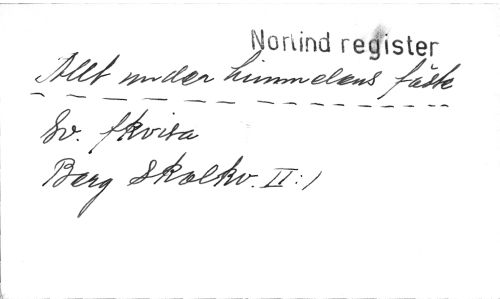 Norlind register
Allt under himmelens fäste
Sv. fkvisa
Berg Skolkv. II:1